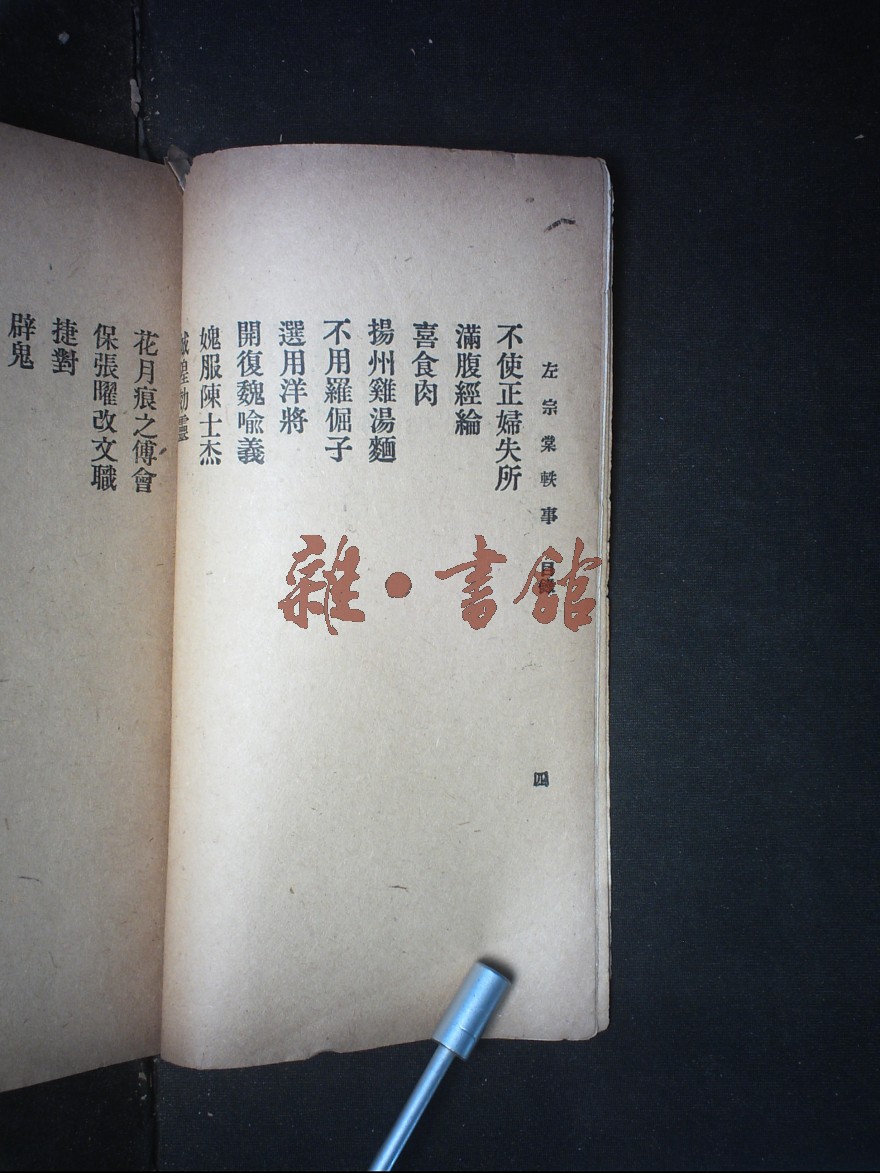 左宗棠軼事 目錄 四
不使正婦失所
滿腹經綸
喜食肉
揚州雞湯麵
不用羅倔子
選用洋將
開復魏喻義
媿服陳士杰
花月痕之傅會
保張曜改文職
捷對
辟鬼
雜·書館